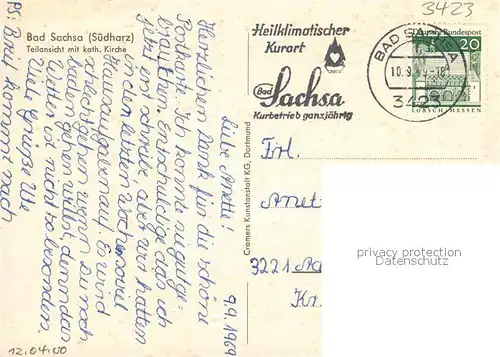 3423
Bad Sachsa (Südharz)
Teilansicht mit kath. Kirche
Heilklimatischer
Kurort
Bad
Sachsa
Kurbetrieb ganzjährig
BAD SACHSA
10.9.69-18
3423
Deutsche Bundespost
20
LORSCH/HESSEN
9.9.1969
Liebe Anette!
Herzlichen Dank für die schöne
Postkarte. Ich konnte sie gut ge-
brauchen. Entschuldige daß ich
jetzt erst schreibe, aber wir hatten
in den letzten Wochen soviel
Hausaufgaben auf. Es wird
schlecht gehen wenn Du noch
baden gehen willst, denn das
Wetter ist nicht so besonders.
Viele Grüsse Ute
PS: kommt nach
Cramers Kunstanstalt KG, Dortmund
Frl.
Anet
3221
Kr.
privacy protection
Datenschutz
12.04.00